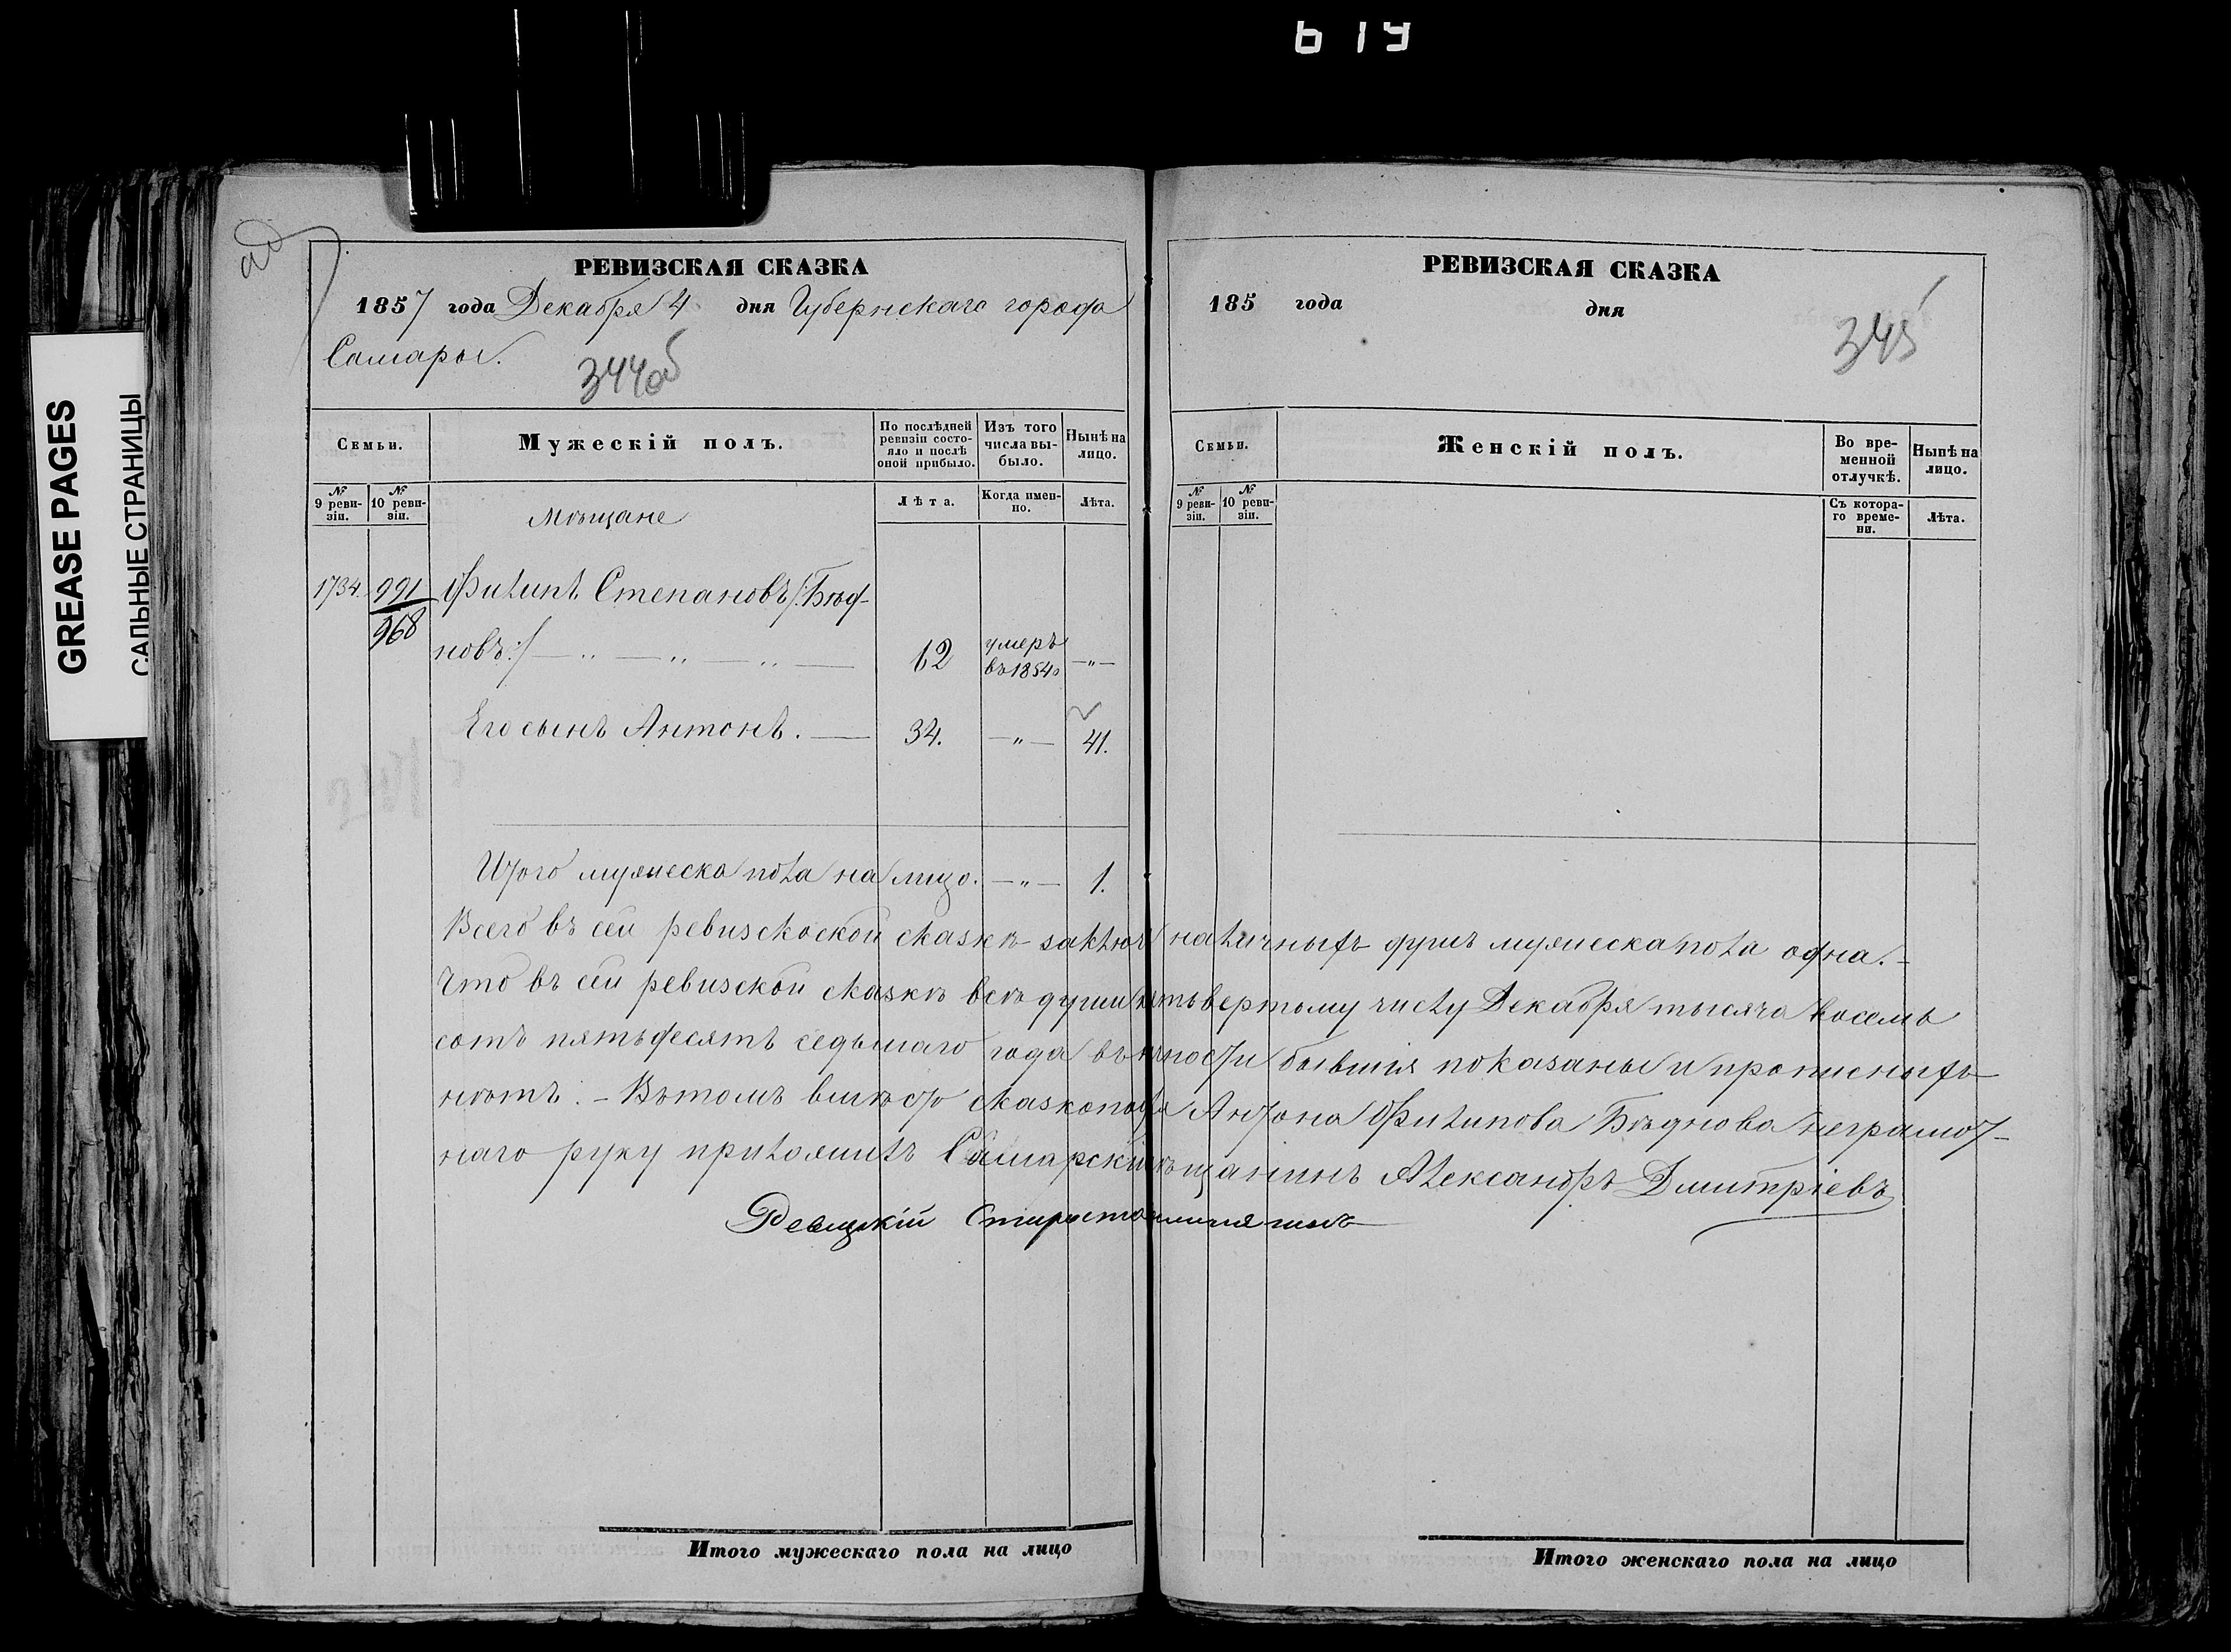 619
GREASE PAGES
САЛЬНЫЕ СТРАНИЦЫ
РЕВИЗСКАЯ СКАЗКА
1857 года Декабря 4 дня Губернскаго города
Самары.
344об
Семьи.
Мужескій полъ.
По послѣдней ревизіи состояло и послѣ оной прибыло.
Изъ того числа выбыло.
Нынѣ на лицо.
№ 9 ревизіи.
№ 10 ревизіи.
Мѣщане
Лѣта.
Когда именно.
Лѣта.
1734. 991 Филипъ Степановъ /:Бѣд-
968
новъ:/ 62 умеръ въ 1854 —"—
Его сынъ Антонъ. 34. —"— 41.
Итого мужеска пола на лицо. —"— 1.
РЕВИЗСКАЯ СКАЗКА
185 года дня
345
Семьи.
Женскій полъ.
Во временной отлучкѣ.
Нынѣ на лицо.
№ 9 ревизіи.
№ 10 ревизіи.
Съ котораго времени.
Лѣта.
Всего въ сей ревизскоской сказкѣ наличныхъ душъ мужеска пола одна.-
Что въ сей ревизской сказкѣ всѣ души четвертому числу Декабря тысяча восемь
сотъ пятьдесятъ седьмаго года бывшія показаны и прописныхъ
нѣтъ. - Въ томъ вмѣсто Антона Филипова Бѣднова неграмот-
наго руку приложилъ Самарскій мѣщанинъ Александръ Дмитріевъ
Итого мужескаго пола на лицо
Итого женскаго пола на лицо